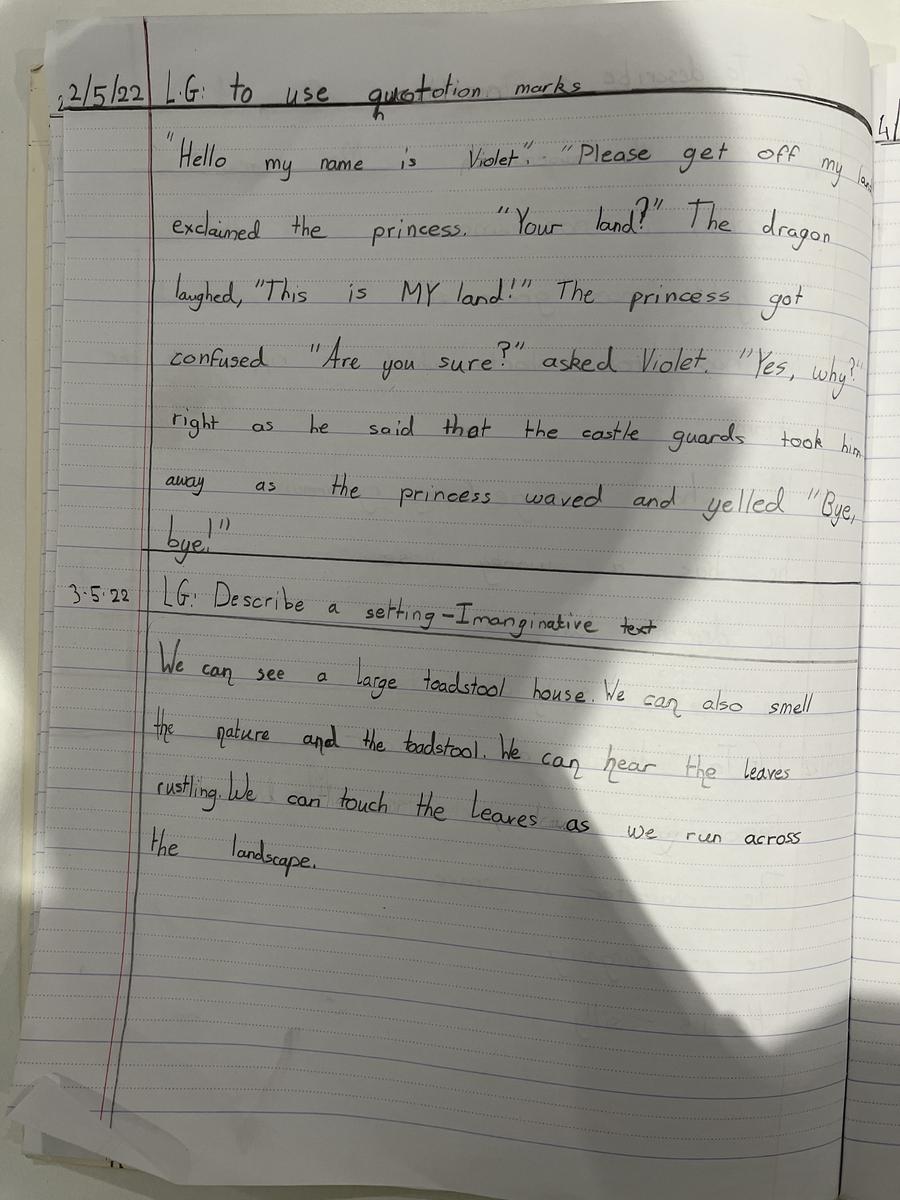 2/5/22 L.G: to use quotation marks
"Hello my name is Violet". "Please get off my
exclaimed the princess. "Your land?" The dragon
laughed, "This is MY land!" The princess got
confused "Are you sure?" asked Violet. "Yes, why?"
right as he said that the castle guards took him
away as the princess waved and yelled "Bye,
bye!"
3.5.22 LG: Describe a setting-Imanginative text
We can see a large toadstool house. We can also smell
the nature and the toadstool. We can hear the leaves
rustling. We can touch the leaves as we run across
the landscape.
4/